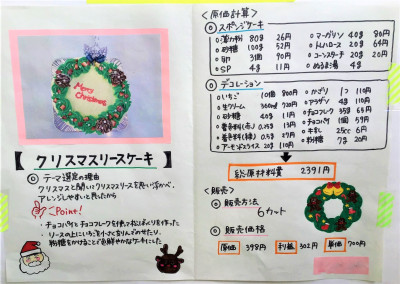 Merry
Christmas
【クリスマスリースケーキ】
◎ テーマ選定の理由
クリスマスと聞いてクリスマスリースを思い浮かべ、
アレンジしやすいと思ったから
Point!
・チョコパイとチョコフレークを使って松ぼっくりを作った
・リースの上にいちごを小さくきりんでのせたり、
粉糖をかけることで色鮮やかなケーキにした
〈原価計算〉
◎ スポンジケーキ
○ 薄力粉 80g 26円
○ 砂糖 100g 52円
○ 卵 3個 90円
○ SP 4g 11円
○ マーガリン 40g 80円
○ トレハロース 20g 64円
○ コーンスターチ 20g 20円
○ ぬるま湯 4g
◎ デコレーション
○ いちご 10個 800円
○ 生クリーム 720円
○ 砂糖 40g 11円
○ 着色料(赤) 0.25g 13円
○ 着色料(緑) 27円
○ アーモンドスライス 20g 110円
○ かざり 1つ 110円
○ アラザン 4g 110円
○ チョコフレーク 35g 65円
○ チョコパイ 1個 59円
○ 牛乳 25cc 6円
○ 粉糖 7g 20円
総原材料費 2391円
〈販売〉
◎ 販売方法
6カット
◎ 販売価格
原価 398円 利益 302円 単価 700円